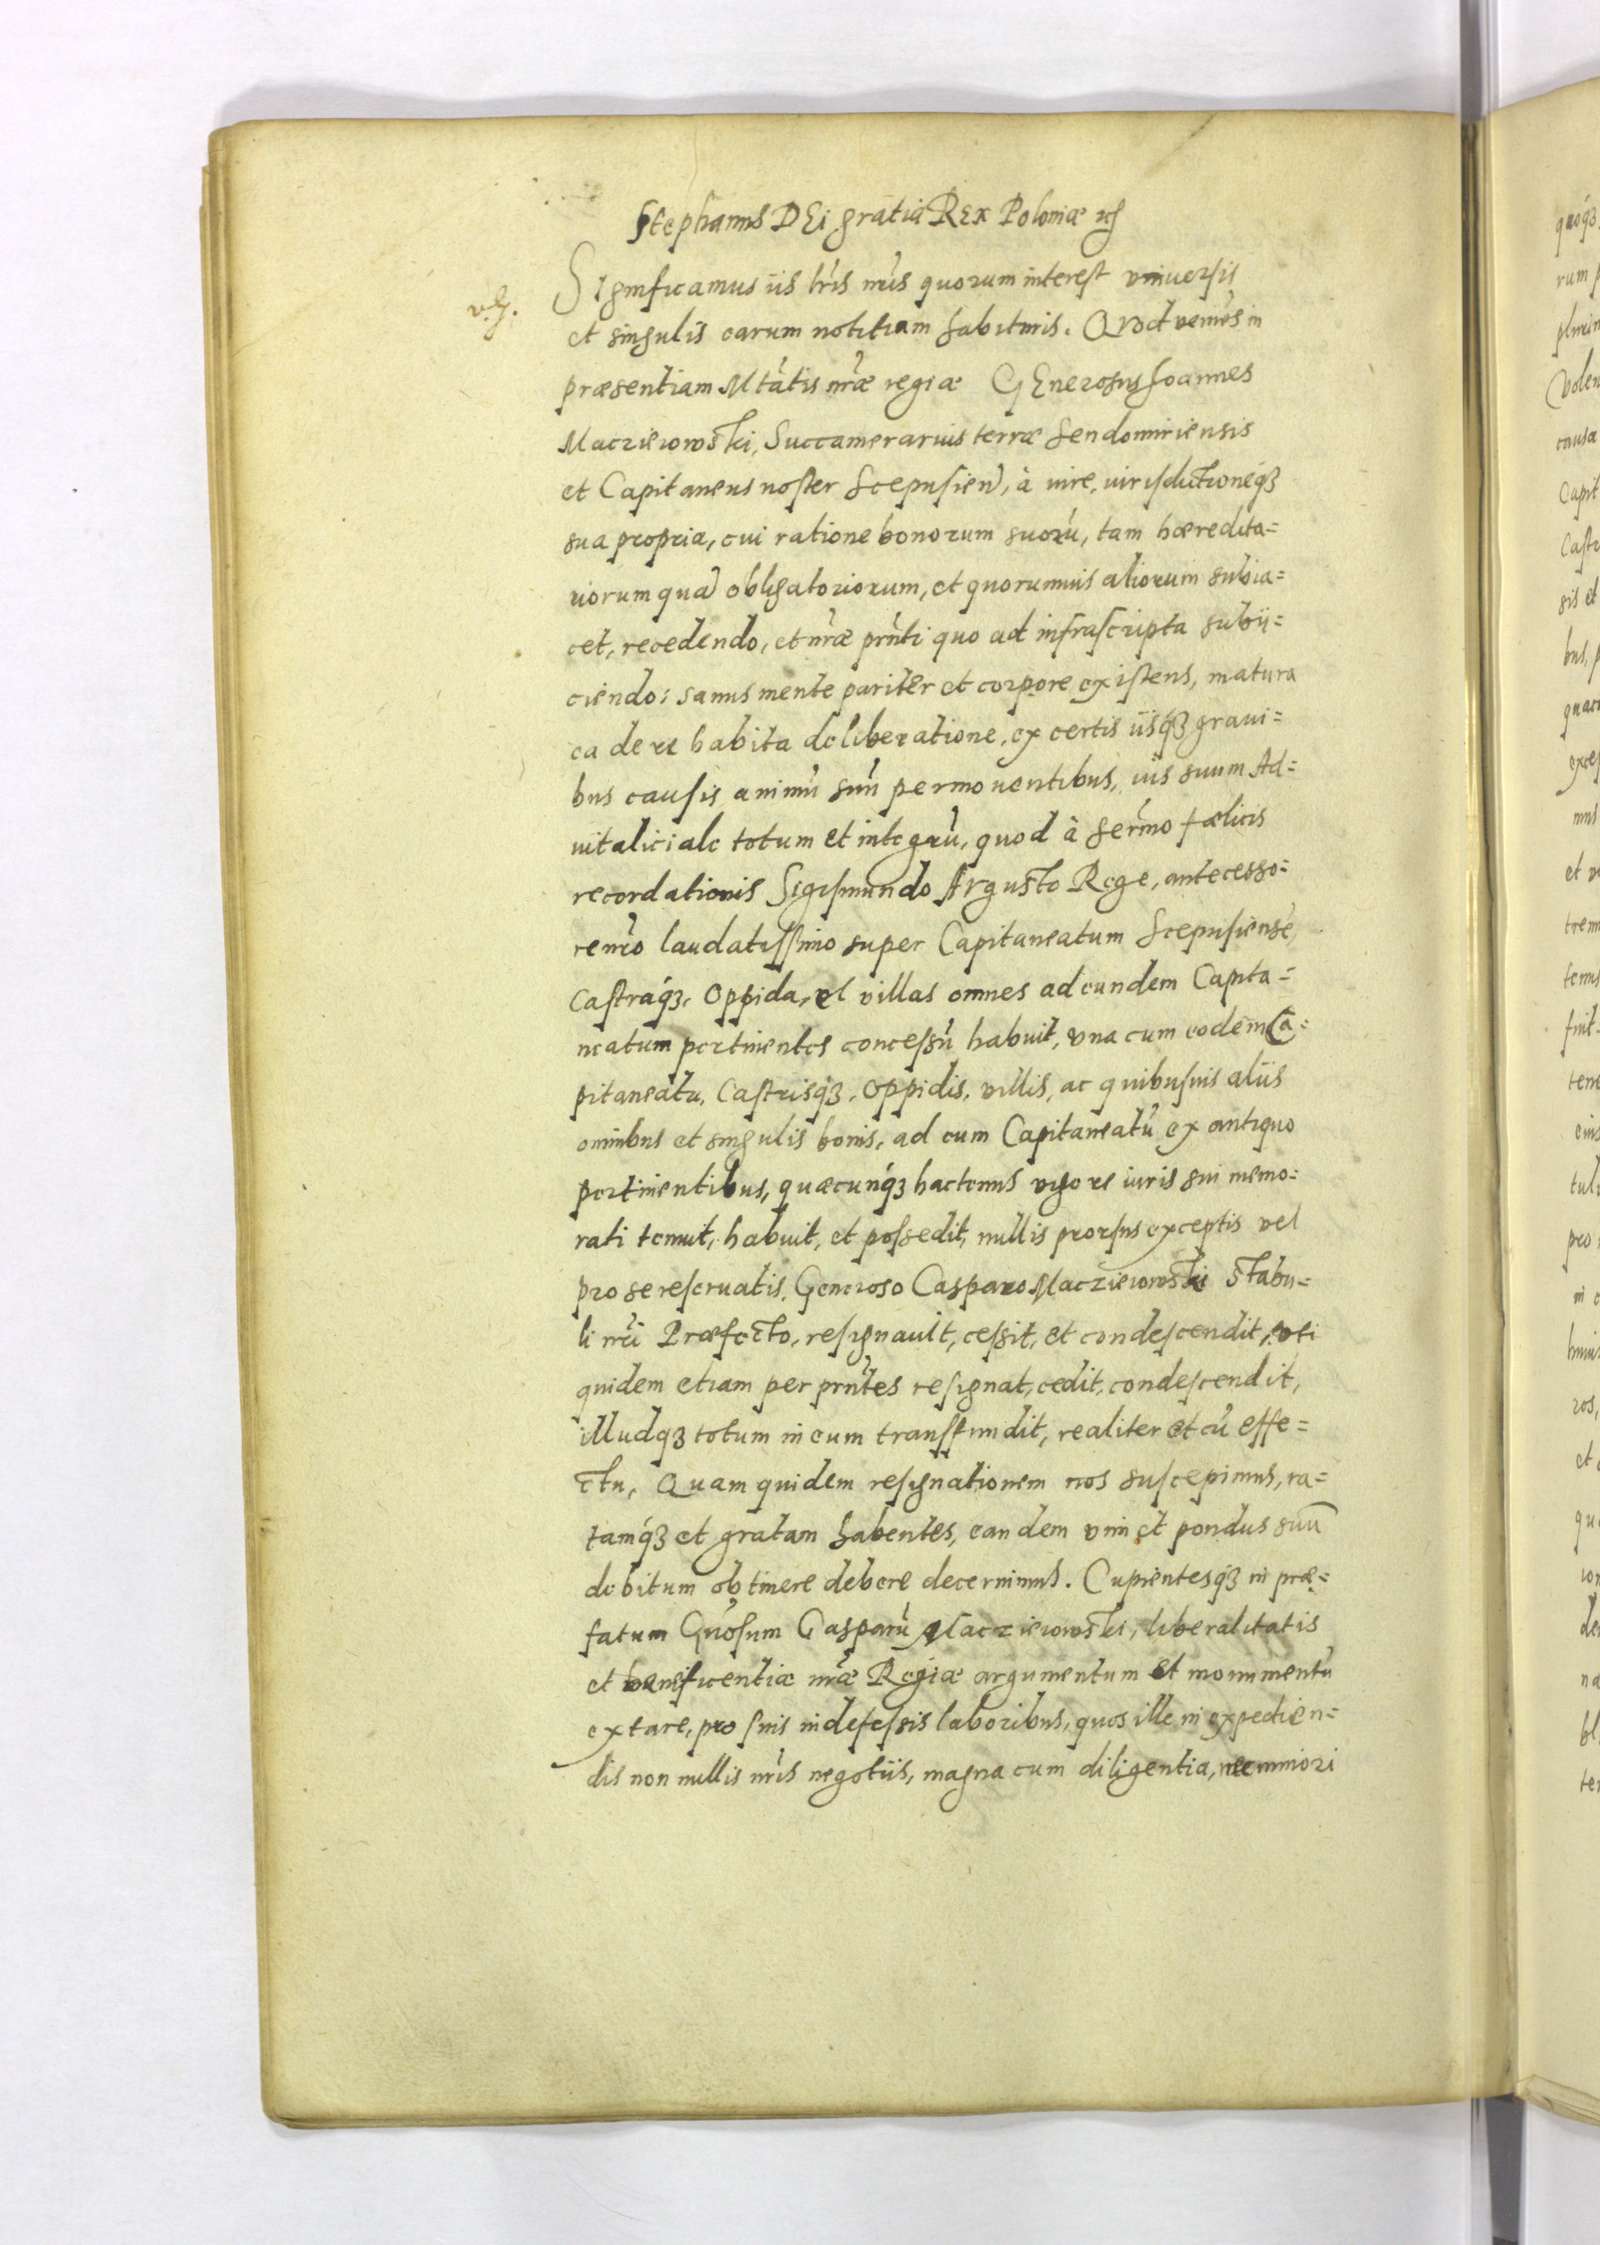 Stephanus DEi gratia REx Poloniæ
Significamus iis lris nris quorum interest vniuersis
et singulis earum notitiam habituris. Quod veniens in
præsentiam Mtatis nræ regiæ GEnerosus Ioannes
Macziewowski, Succamerarius terræ Sendomiriensis
et Capitaneus noster Scepusien, à iure, iurisdictioneq3
sua propria, cui ratione bonorum suorũ, tam hæredita=
riorum qua obligatoriorum, et quorumuis aliorum subia=
cet, recedendo, et nræ prnti quo ad infrascripta subij=
ciendo: sanus mente pariter et corpore existens, matura
ea de re habita deliberatione, ex certis iisq3 graui=
bus causis animũ suũ permouentibus, ius suum Ad=
uitaliciale totum et integrũ, quod à Sermo fælicis
recordationis Sigismundo Augusto Rege, antecesso=
re nro laudatissimo super Capitaneatum Scepusiense,
Castraq3, Oppida, et villas omnes ad eundem Capita=
neatum pertinentes concessũ habuit, vna cum eodem Ca=
pitaneatu, Castrisq3, Oppidis, villis, ac quibusuis aliis
omnibus et singulis bonis, ad eum Capitaneatũ ex antiquo
pertinentibus, quæcunq3 hactenus vigore iuris sui memo=
rati tenuit, habuit, et possedit, nullis prorsus exceptis vel
pro se reseruatis, Generoso Casparo Macziewowski Stabu=
li nri Præfecto, resignauit, cessit, et condescendit, uti
quidem etiam per prntes resignat, cedit, condescendit,
illudq3 totum in eum transfundit, realiter et cũ effe=
ctu, Quam quidem resignationem nos suscepimus, ra=
tamq3 et gratam habentes, eandem vim et pondus suũ
debitum obtinere debere decernimus. Cupientesq3 in præ=
fatum Gnosum Casparũ Macziewowski, liberalitatis
et beneficentiæ nræ Regiæ argumentum et monumentũ
extare, pro suis indefessis laboribus, quos ille in expedien=
dis non nullis nris negotiis, magna cum diligentia, nec minori